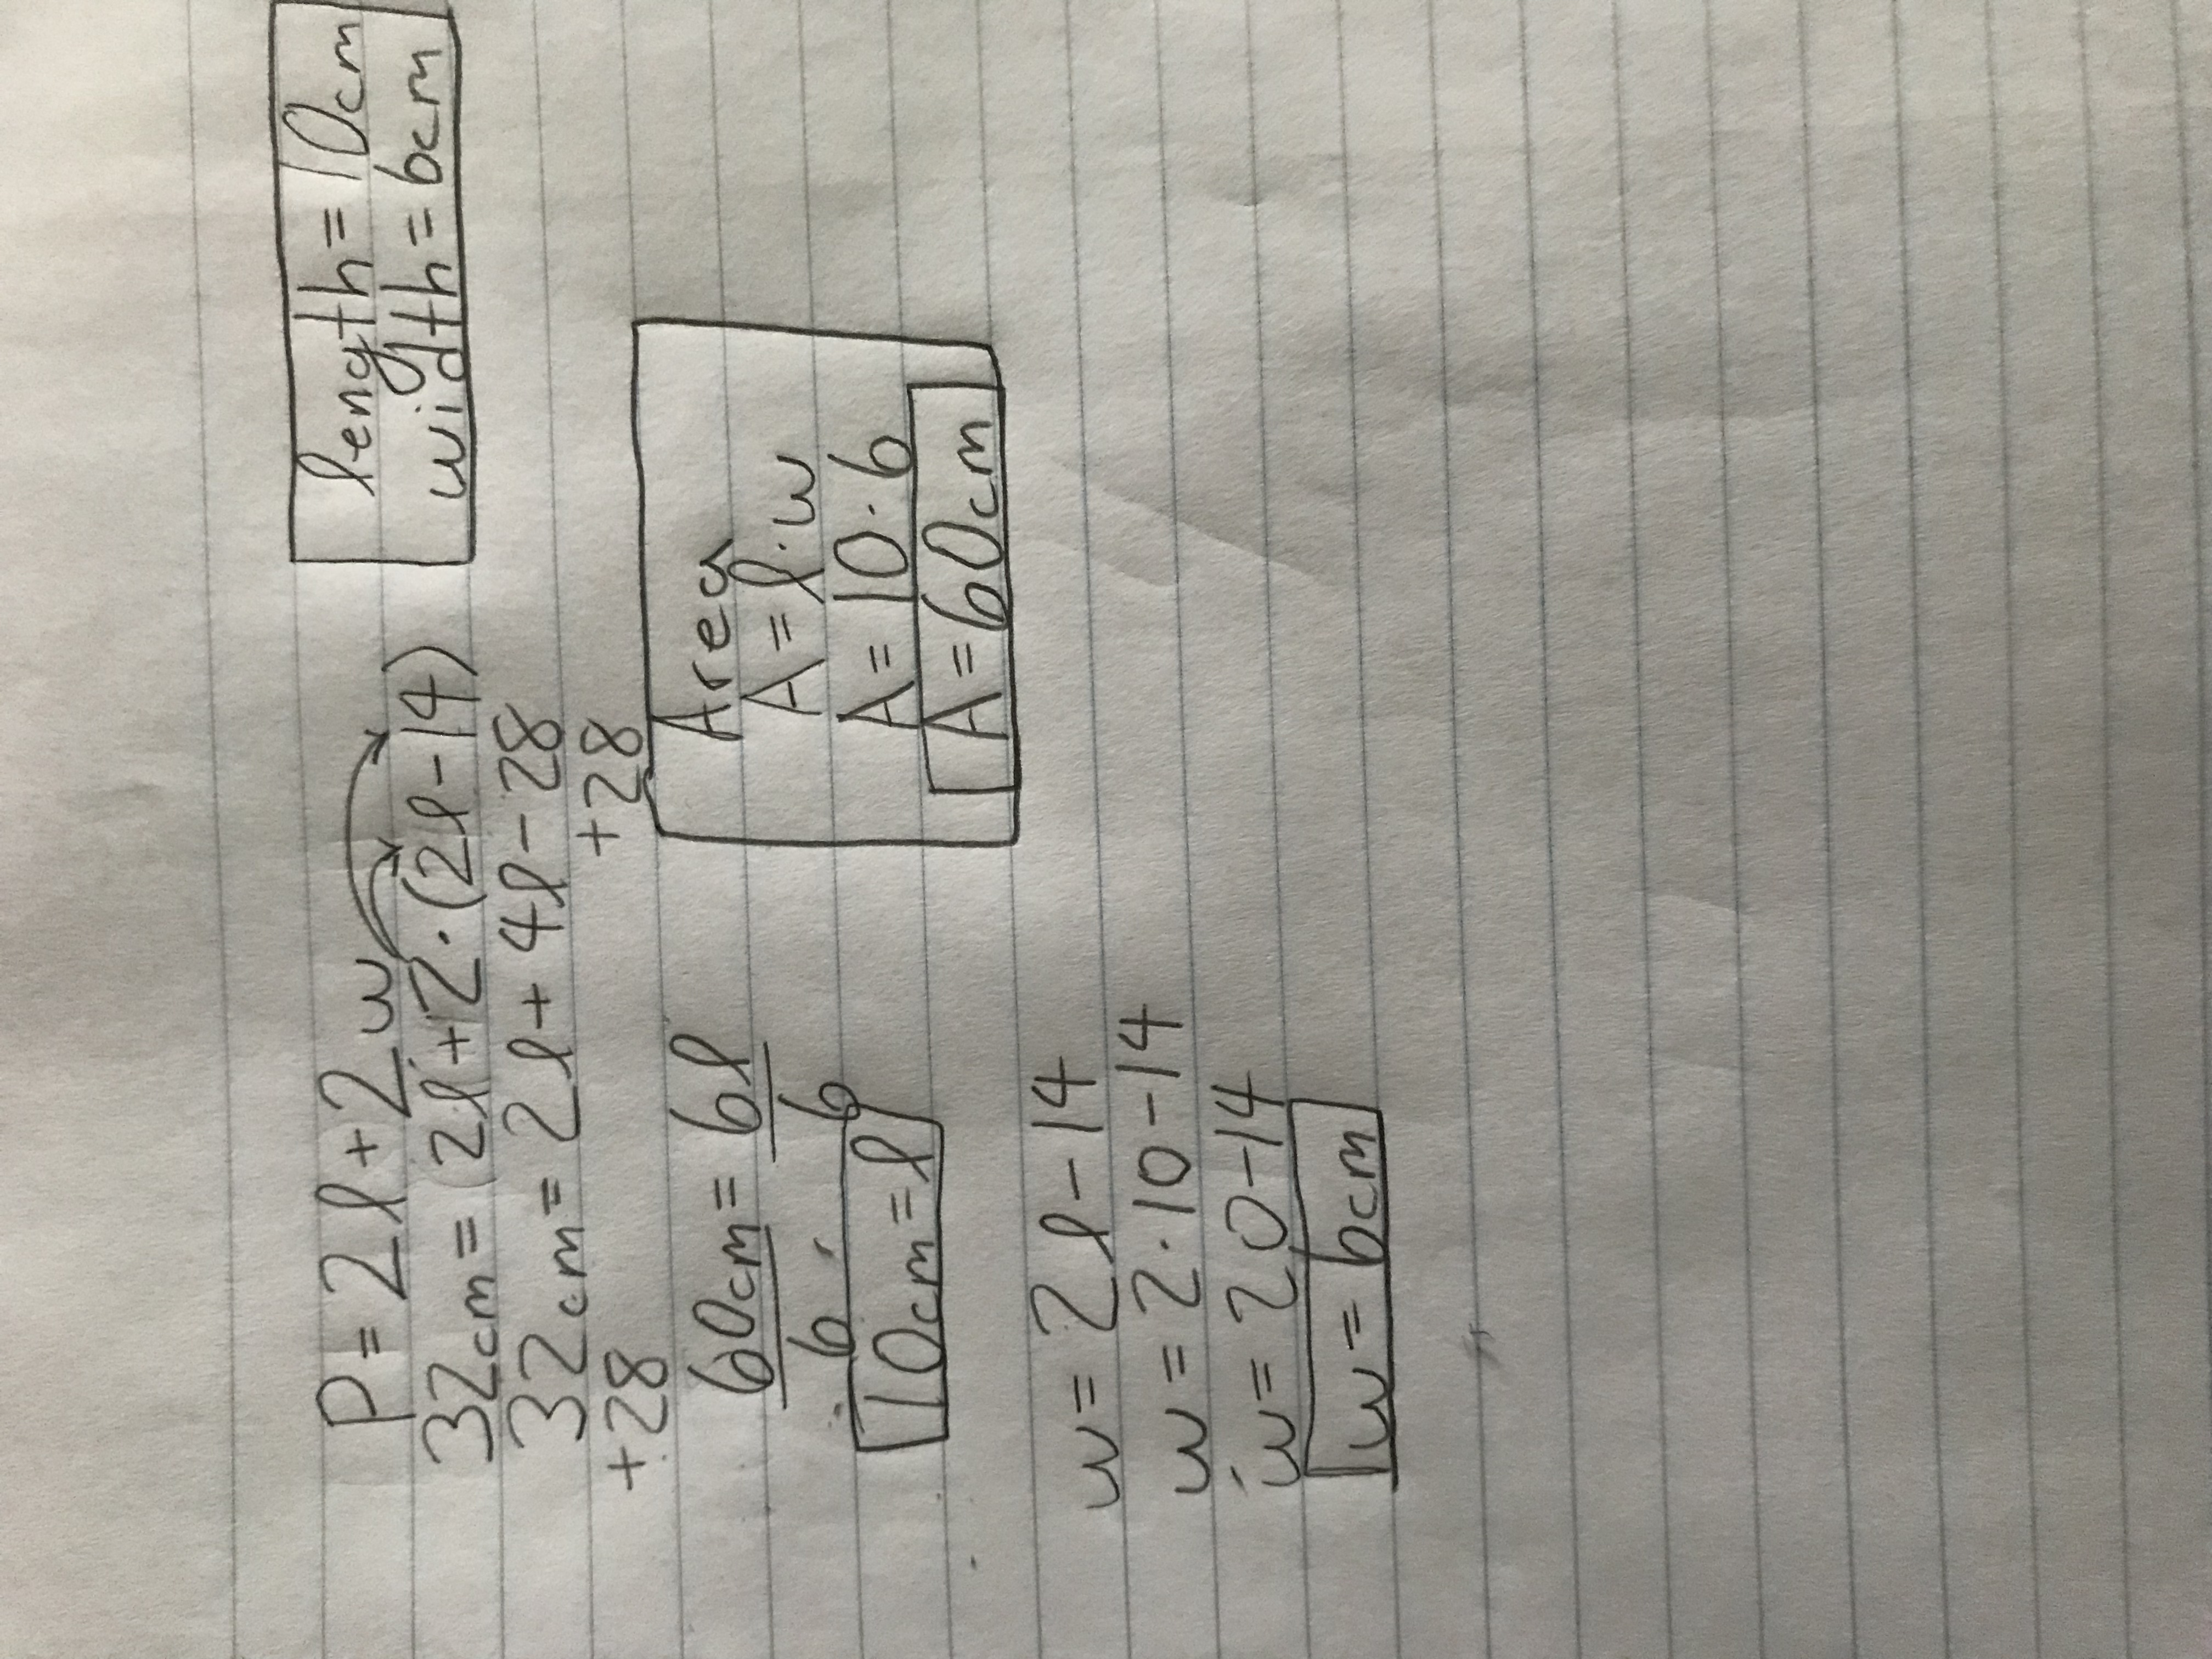 P = 2l + 2w
32cm = 2l + 2·(2l - 14)
32cm = 2l + 4l - 28
+28 +28
60cm = 6l
6 6
10cm = l
w = 2l - 14
w = 2·10 - 14
w = 20 - 14
w = 6cm
length = 10cm
width = 6cm
Area
A = l·w
A = 10·6
A = 60cm